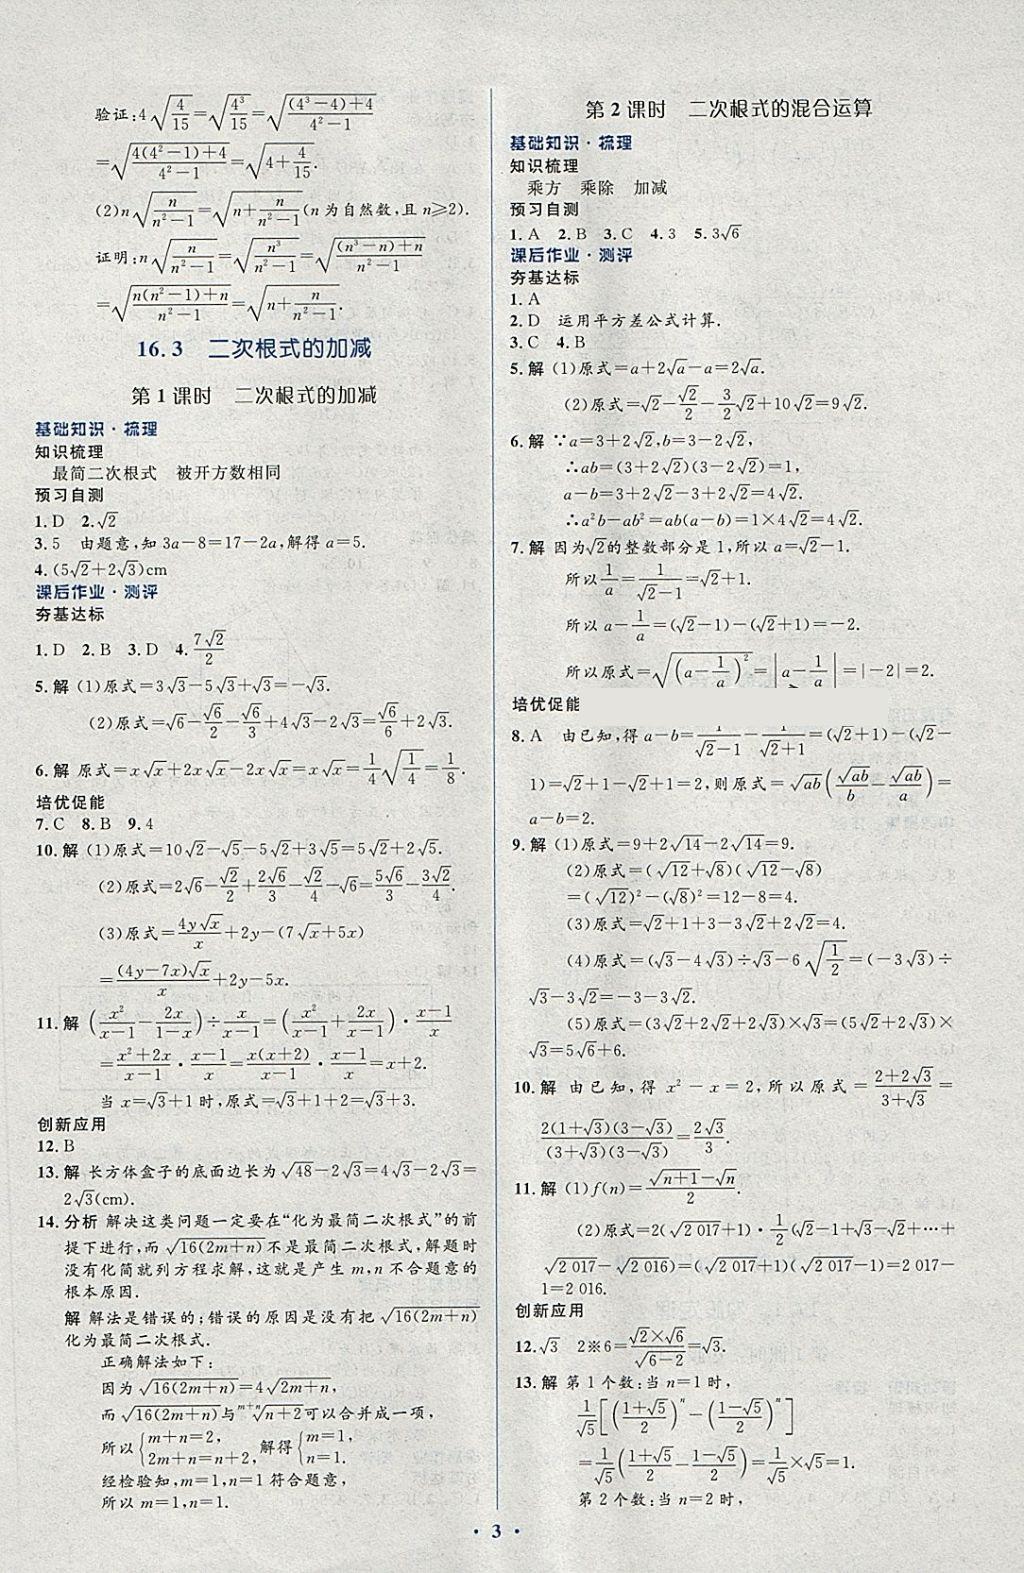 验证:4√(4/15)=√(4³/15)=√(((4³-4)+4)/(4²-1))
=√((4(4²-1)+4)/(4²-1))=√(4+4/15).
(2)n√(n/(n²-1))=√(n+n/(n²-1))(n为自然数,且n⩾2).
证明:n√(n/(n²-1))=√(n³/(n²-1))=√(((n³-n)+n)/(n²-1))
=√((n(n²-1)+n)/(n²-1))=√(n+n/(n²-1)).
16.3 二次根式的加减
第1课时 二次根式的加减
基础知识·梳理
知识梳理
最简二次根式 被开方数相同
预习自测
1.D 2.√2
3.5 由题意,知3a-8=17-2a,解得a=5.
4.(5√2+2√3)cm
课后作业·测评
夯基达标
1.D 2.B 3.D 4.7√2/2
5.解 (1)原式=3√3-5√3+√3=-√3.
(2)原式=√6-√6/2-√6/3+4√3-2√3=√6/6+2√3.
6.解 原式=x√x+2x√x-2x√x=x√x=1/4√(1/4)=1/8.
培优促能
7.C 8.B 9.4
10.解 (1)原式=10√2-√5-5√2+3√5=5√2+2√5.
(2)原式=2√6-√2/2+2√6/3-√2/4-√6=5√6/3-3√2/4.
(3)原式=4y√x/x+2y-(7√x+5x)
=(4y-7x)√x/x+2y-5x.
11.解 (x²/(x-1)-2x/(1-x))÷x/(x-1)=(x²/(x-1)+2x/(x-1))·(x-1)/x
=(x²+2x)/(x-1)·(x-1)/x=x(x+2)/(x-1)·(x-1)/x=x+2.
当x=√3+1时,原式=√3+1+2=√3+3.
创新应用
12.B
13.解 长方体盒子的底面边长为√48-2√3=4√3-2√3=
2√3(cm).
14.分析 解决这类问题一定要在“化为最简二次根式”的前
提下进行,而√(16(2m+n))不是最简二次根式,解题时
没有化简就列方程求解,这就是产生m,n不合题意的
根本原因.
解 解法是错误的;错误的原因是没有把√(16(2m+n))
化为最简二次根式.
正确解法如下:
因为√(16(2m+n))=4√(2m+n),
而√(16(2m+n))与ᵐ⁺ⁿ√(n+2)可以合并成一项,
所以{m+n=2, 2m+n=n+2,解得{m=1, n=1.
经检验知,m=1,n=1符合题意,
所以m=1,n=1.
第2课时 二次根式的混合运算
基础知识·梳理
知识梳理
乘方 乘除 加减
预习自测
1.A 2.B 3.C 4.3 5.3√6
课后作业·测评
夯基达标
1.A
2.D 运用平方差公式计算.
3.C 4.B
5.解 (1)原式=a+2√a-a=2√a.
(2)原式=√2-√2/2-3/2√2+10√2=9√2.
6.解 ∵a=3+2√2,b=3-2√2,
∴ab=(3+2√2)(3-2√2)=1,
a-b=3+2√2-3+2√2=4√2.
∴a²b-ab²=ab(a-b)=1×4√2=4√2.
7.解 因为√2的整数部分是1,所以a=√2-1.
所以1/a=1/(√2-1)=√2+1.
所以a-1/a=(√2-1)-(√2+1)=-2.
所以原式=√((a-1/a)²)=|a-1/a|=|-2|=2.
培优促能
8.A 由已知,得a-b=1/(√2-1)-1/(√2+1)=(√2+1)-(√2-
1)=√2+1-√2+1=2,则原式=√ab(√ab/b-√ab/a)=
a-b=2.
9.解 (1)原式=9+2√14-2√14=9.
(2)原式=(√12+√8)(√12-√8)
=(√12)²-(√8)²=12-8=4.
(3)原式=√2+1+3-3√2+2√2=4.
(4)原式=(√3-4√3)÷√3-6√(1/2)=(-3√3)÷
√3-3√2=-3-3√2.
(5)原式=(3√2+2√2+2√3)×√3=(5√2+2√3)×
√3=5√6+6.
10.解 由已知,得x²-x=2,所以原式=(2+2√3)/(3+√3)=
2(1+√3)(3-√3)/((3+√3)(3-√3))=2√3/3.
11.解 (1)f(n)=(√(n+1)-√n)/2.
(2)原式=2(√2 017+1)·1/2(√2-1+√3-√2+…+
√2 017-√2 016)=(√2 017+1)(√2 017-1)=2 017-
1=2 016.
创新应用
12.√3 2※6=√2×√6/√(6-2)=√3.
13.解 第1个数:当n=1时,
1/√5[((1+√5)/2)ⁿ-((1-√5)/2)ⁿ]
=1/√5((1+√5)/2-(1-√5)/2)=1/√5×√5=1.
第2个数:当n=2时,
·3·